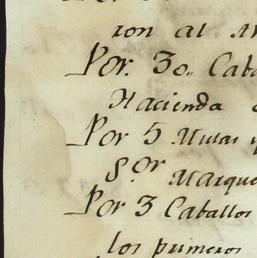 ron al
Por. 30.. Caba
Hacienda
Por 5 Mulas y
S.or Marque
Por 3 Caballos
los primeros